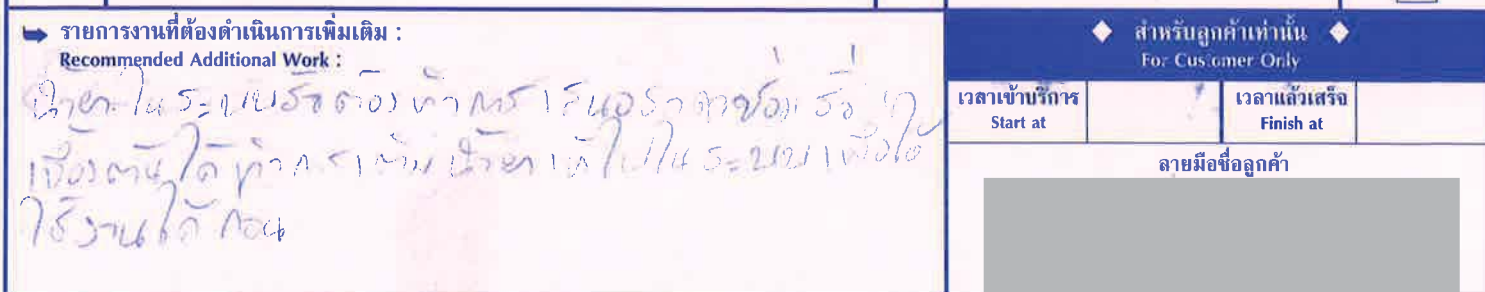 รายการงานที่ต้องดำเนินการเพิ่มเติม :
Recommended Additional Work :
น้ำยาในระบบรั่วต้องทำการเสนอราคาซ่อมรั่ว
เบื้องต้นได้ทำการเติมน้ำยาเข้าไปในระบบเพื่อให้
ใช้งานได้ก่อน
สำหรับลูกค้าเท่านั้น
For Customer Only
เวลาเข้าบริการ
Start at
เวลาแล้วเสร็จ
Finish at
ลายมือชื่อลูกค้า